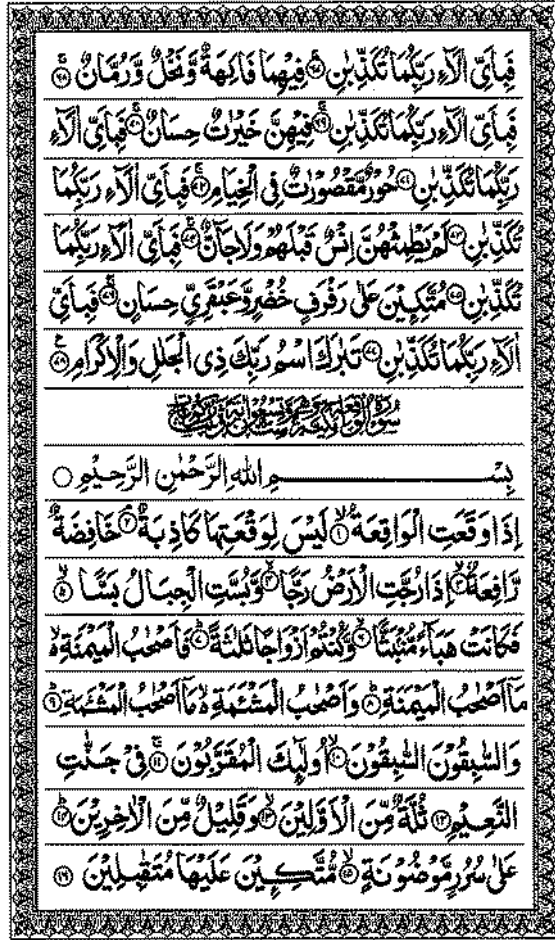 فَبِاَيِّ اٰلَآءِ رَبِّكُمَا تُكَذِّبٰنِ ﴿٦٧﴾ فِيْهِمَا فَاكِهَةٌ وَّنَخْلٌ وَّرُمَّانٌ ﴿٦٨﴾
فَبِاَيِّ اٰلَآءِ رَبِّكُمَا تُكَذِّبٰنِ ﴿٦٩﴾ فِيْهِنَّ خَيْرٰتٌ حِسَانٌ ﴿٧٠﴾ فَبِاَيِّ اٰلَآءِ
رَبِّكُمَا تُكَذِّبٰنِ ﴿٧١﴾ حُوْرٌ مَّقْصُوْرٰتٌ فِى الْخِيَامِ ﴿٧٢﴾ فَبِاَيِّ اٰلَآءِ رَبِّكُمَا
تُكَذِّبٰنِ ﴿٧٣﴾ لَمْ يَطْمِثْهُنَّ اِنْسٌ قَبْلَهُمْ وَلَا جَآنٌّ ﴿٧٤﴾ فَبِاَيِّ اٰلَآءِ رَبِّكُمَا
تُكَذِّبٰنِ ﴿٧٥﴾ مُتَّكِـِٕيْنَ عَلٰى رَفْرَفٍ خُضْرٍ وَّعَبْقَرِيٍّ حِسَانٍ ﴿٧٦﴾ فَبِاَيِّ
اٰلَآءِ رَبِّكُمَا تُكَذِّبٰنِ ﴿٧٧﴾ تَبٰرَكَ اسْمُ رَبِّكَ ذِى الْجَلٰلِ وَالْاِكْرَامِ ﴿٧٨﴾
بِسْمِ اللّٰهِ الرَّحْمٰنِ الرَّحِيْمِ
اِذَا وَقَعَتِ الْوَاقِعَةُ ﴿١﴾ لَيْسَ لِوَقْعَتِهَا كَاذِبَةٌ ﴿٢﴾ خَافِضَةٌ
رَّافِعَةٌ ﴿٣﴾ اِذَا رُجَّتِ الْاَرْضُ رَجًّا ﴿٤﴾ وَّبُسَّتِ الْجِبَالُ بَسًّا ﴿٥﴾
فَكَانَتْ هَبَآءً مُّنْۢبَثًّا ﴿٦﴾ وَّكُنْتُمْ اَزْوَاجًا ثَلٰثَةً ﴿٧﴾ فَاَصْحٰبُ الْمَيْمَنَةِ
مَاۤ اَصْحٰبُ الْمَيْمَنَةِ ﴿٨﴾ وَاَصْحٰبُ الْمَشْـَٔمَةِ مَاۤ اَصْحٰبُ الْمَشْـَٔمَةِ ﴿٩﴾
وَالسّٰبِقُوْنَ السّٰبِقُوْنَ ﴿١٠﴾ اُولٰٓئِكَ الْمُقَرَّبُوْنَ ﴿١١﴾ فِيْ جَنّٰتِ
النَّعِيْمِ ﴿١٢﴾ ثُلَّةٌ مِّنَ الْاَوَّلِيْنَ ﴿١٣﴾ وَقَلِيْلٌ مِّنَ الْاٰخِرِيْنَ ﴿١٤﴾
عَلٰى سُرُرٍ مَّوْضُوْنَةٍ ﴿١٥﴾ مُّتَّكِـِٕيْنَ عَلَيْهَا مُتَقٰبِلِيْنَ ﴿١٦﴾